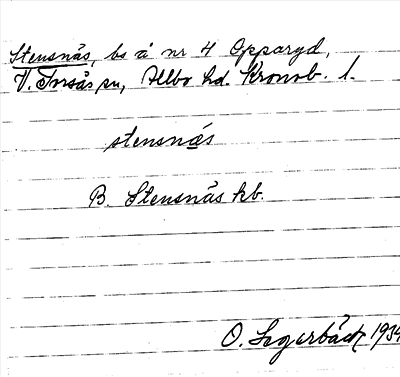 Stensnäs, bs å nr 4 Opparyd,
V. Torsås sn, Allbo hd. Kronob. l.
stensnä́s
B. Stensnäs kb.
O. Segerbäck 1934